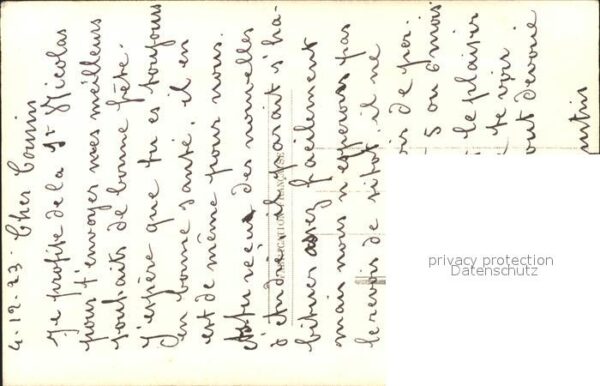 4-12-23- Cher Cousin
Je profite de la St Nicolas
pour t'envoyer mes meilleurs
souhaits de bonne fête.
J'espère que tu es toujours
en bonne santé, il en
est de même pour nous.
As tu reçu des nouvelles
d'André, il parait s'ha-
bituer assez facilement
mais nous n'espérons pas
le revoir de sitôt, il ne
de per
5 ou 6 mois
le plaisir
te voir
out dévoué
privacy protection
Datenschutz